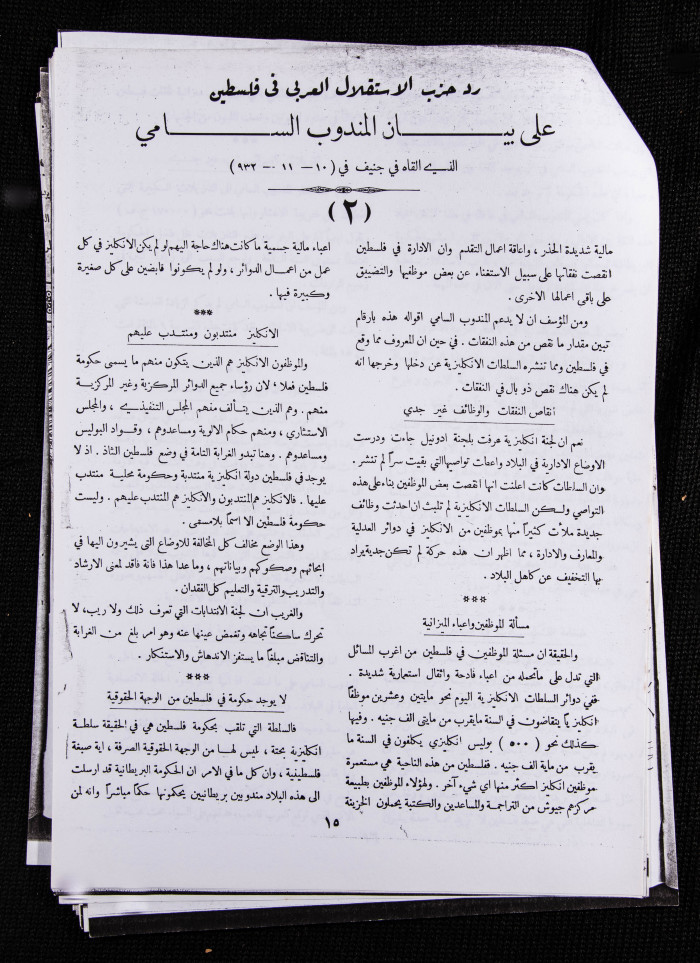 رد حزب الاستقلال العربي في فلسطين
على بيـــان المندوب الســـامي
الذي القاه في جنيف في (١٠ – ١١ – ٩٣٢)
(٢)
مالية شديدة الحذر ، واعاقة اعمال التقدم وان الادارة في فلسطين
انقصت نفقاتها على سبيل الاستغناء عن بعض موظفيها والتضييق
على باقي اعمالها الاخرى .
ومن المؤسف ان لا يدعم المندوب السامي اقواله هذه بارقام
تبين مقدار ما نقص من هذه النفقات . في حين ان المعروف مما وقع
في فلسطين ومما تنشره السلطات الانكليزية عن دخلها وخرجها انه
لم يكن هناك نقص ذو بال في النفقات .
أنقاص النفقات والوظائف غير جدي
نعم ان لجنة انكليزية عرفت بلجنة ادونيل جاءت ودرست
الاوضاع الادارية في البلاد واعطت تواصيها التي بقيت سراً لم تنشر .
وان السلطات كانت اعلنت انها انقصت بعض الموظفين بناء على هذه
التواصي ولكن السلطات الانكليزية لم تلبث ان احدثت وظائف
جديدة ملأت كثيراً منها بموظفين من الانكليز في دوائر العدلية
والمعارف والادارة ، مما اظهر ان هذه حركة لم تكن جدية يراد
بها التخفيف عن كاهل البلاد .
***
مسألة الموظفين واعباء الميزانية
والحقيقة ان مسئلة الموظفين في فلسطين من اغرب المسائل
التي تدل على ماتحمله من اعباء فادحة واثقال استعمارية شديدة .
ففي دوائر السلطات الانكليزية اليوم نحو مايتين وعشرين موظفاً
انكليزياً يتقاضون في السنة مايقرب من مايتي الف جنيه . وفيها
كذلك نحو (٥٠٠) بوليس انكليزي يكلفون في السنة ما
يقرب من ماية الف جنيه . ففلسطين من هذه الناحية هي مستعمرة
موظفين انكليز اكثر منها اي شيء آخر . ولهؤلاء الموظفين بطبيعة
مركزهم جيوش من التراجمة والمساعدين والكتبة يحملون الخزينة
اعباء مالية جسيمة ما كانت هناك حاجة اليهم لو لم يكن الانكليز في كل
عمل من اعمـال الدوائر ، ولو لم يكونوا قابضين على كل صغيرة
وكبيرة فيها .
***
الانكليز منتدبون ومنتـدب عليهم
والموظفون الانكليز هم الذين يتكون منهم ما يسمى حكومة
فلسطين فعلا ً لان رؤساء جميع الدوائر المركزية وغير المركزية
منهم . وهم الذين يتـألف منهم المجلس التنفيذي ، والمجلس
الاستشاري ، ومنهم حكام الالوية ومساعدوهم ، وقـواد البوليس
ومساعدوهم . وهنا تبدو الغرابة التامة في وضع فلسطين الشاذ . اذ لا
يوجد في فلسطين دولة انكليزية منتدبة وحكومة محلية منتدب
عليها . فالانكليز هم المنتدبون والانكليز هم المنتدب عليهم . وليست
حكومة فلسطين الا اسماً بلا مسمى .
وهذا الوضع مخالف كل المخالفة للاوضاع التي يشيرون اليها في
ابحاثهم وصكوكهم وبياناتهم ، وماعدا هذا فانة فاقد لمعنى الارشاد
والتدريب والترقية والتعليم كل الفقدان .
والغريب ان لجنة الانتدابات التي تعرف ذلك ولا ريب ، لا
تحرك ساكناً تجاهه وتغمض عينها عنه وهو امر بلغ من الغرابة
والتناقض مبلغاً ما يستفز الاندهاش والاستنكار .
***
لا يوجد حكومة في فلسطين من الوجهة الحقوقية
فالسلطة التي تلقب بحكومة فلسطين هي في الحقيقة سلطة
انكليزية بحتة ، ليس لهـا من الوجهة الحقوقية الصرفة ، اية صبغة
فلسطينية ، وان كل ما في الامر ان الحكومة البريطانية قد ارسلت
الى هذه البلاد مندوبين بريطانيين يحكمونها حكماً مباشراً وانه لمن
١٥